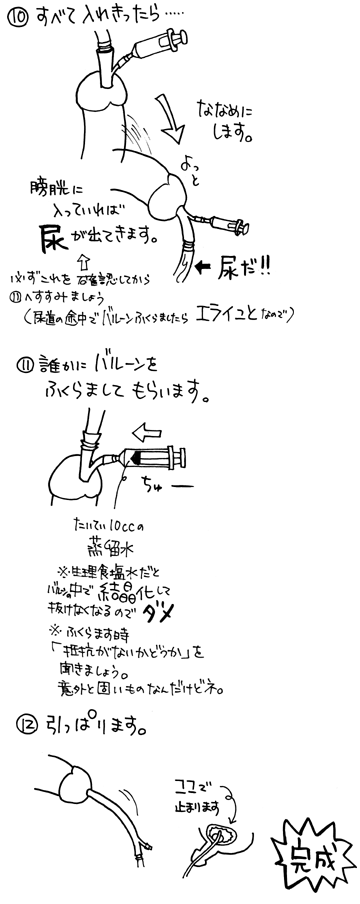 ⑩ すべて入れきったら……
ななめに
します。
よっと
膀胱に
入っていれば
尿が出てきます。
← 尿だ!!
必ずこれを確認してから
⑪へすすみましょう
(尿道の途中でバルーンふくらましたら エライコとなので)
⑪ 誰かに バルーンを
ふくらまして もらいます。
ちゅー
たいてい10ccの
蒸留水
※生理食塩水だと
バルーン中で 結晶化して
抜けなくなるので ダメ
※ ふくらます時
「抵抗がないかどうか」を
聞きましょう。
意外と固いものなんだけどネ。
⑫ 引っぱります。
ココで
止まります
完成